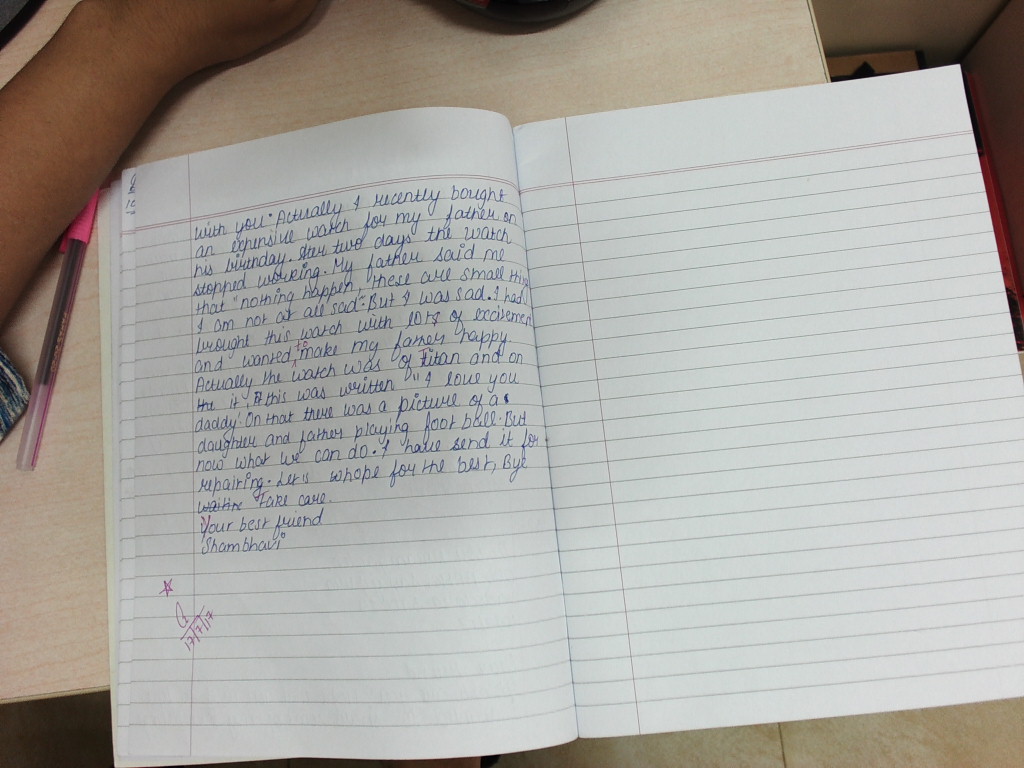 with you. Actually I recently bought
an expensive watch for my father on
his birthday. After two days the watch
stopped working. My father said me
that "nothing happen, these are small thing
I am not at all sad". But I was sad. I had
brought this watch with lots of excitement
and wanted to make my father happy.
Actually the watch was of Titan and on
the it this was written "I love you
daddy. On that there was a picture of a
daughter and father playing foot ball. But
now what we can do. I have send it for
repairing. Let's hope for the best, Bye
Take care.
Your best friend
Shambhavi
17/7/17